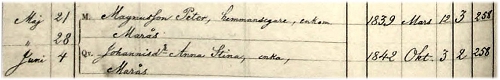 Maj 21 M. Magnusson Peter, hemmansegare, enkom 1839 Mars 12 3 258
" 28 Marås
Juni 4 Qv. Johannisdr Anna Stina, enka, 1842 Okt. 3 2 258
Marås